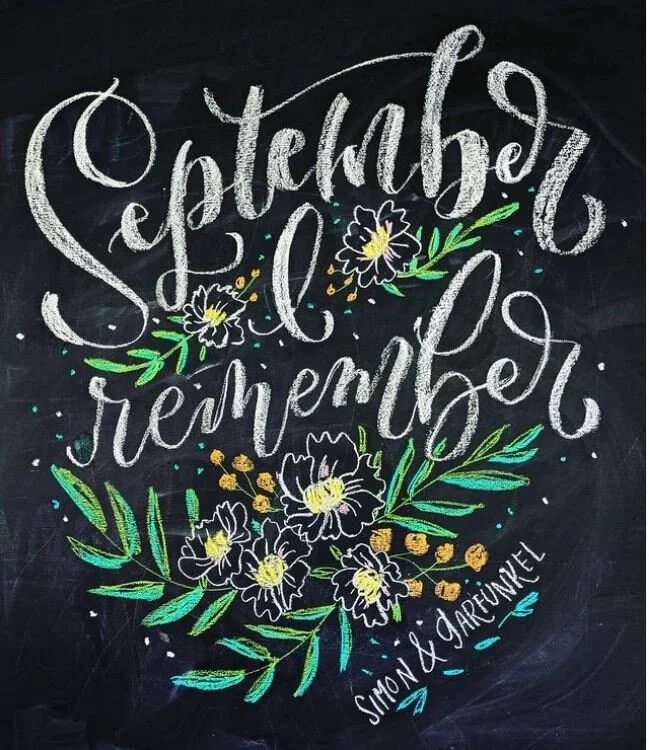 September
I
remember
SIMON & GARFUNKEL